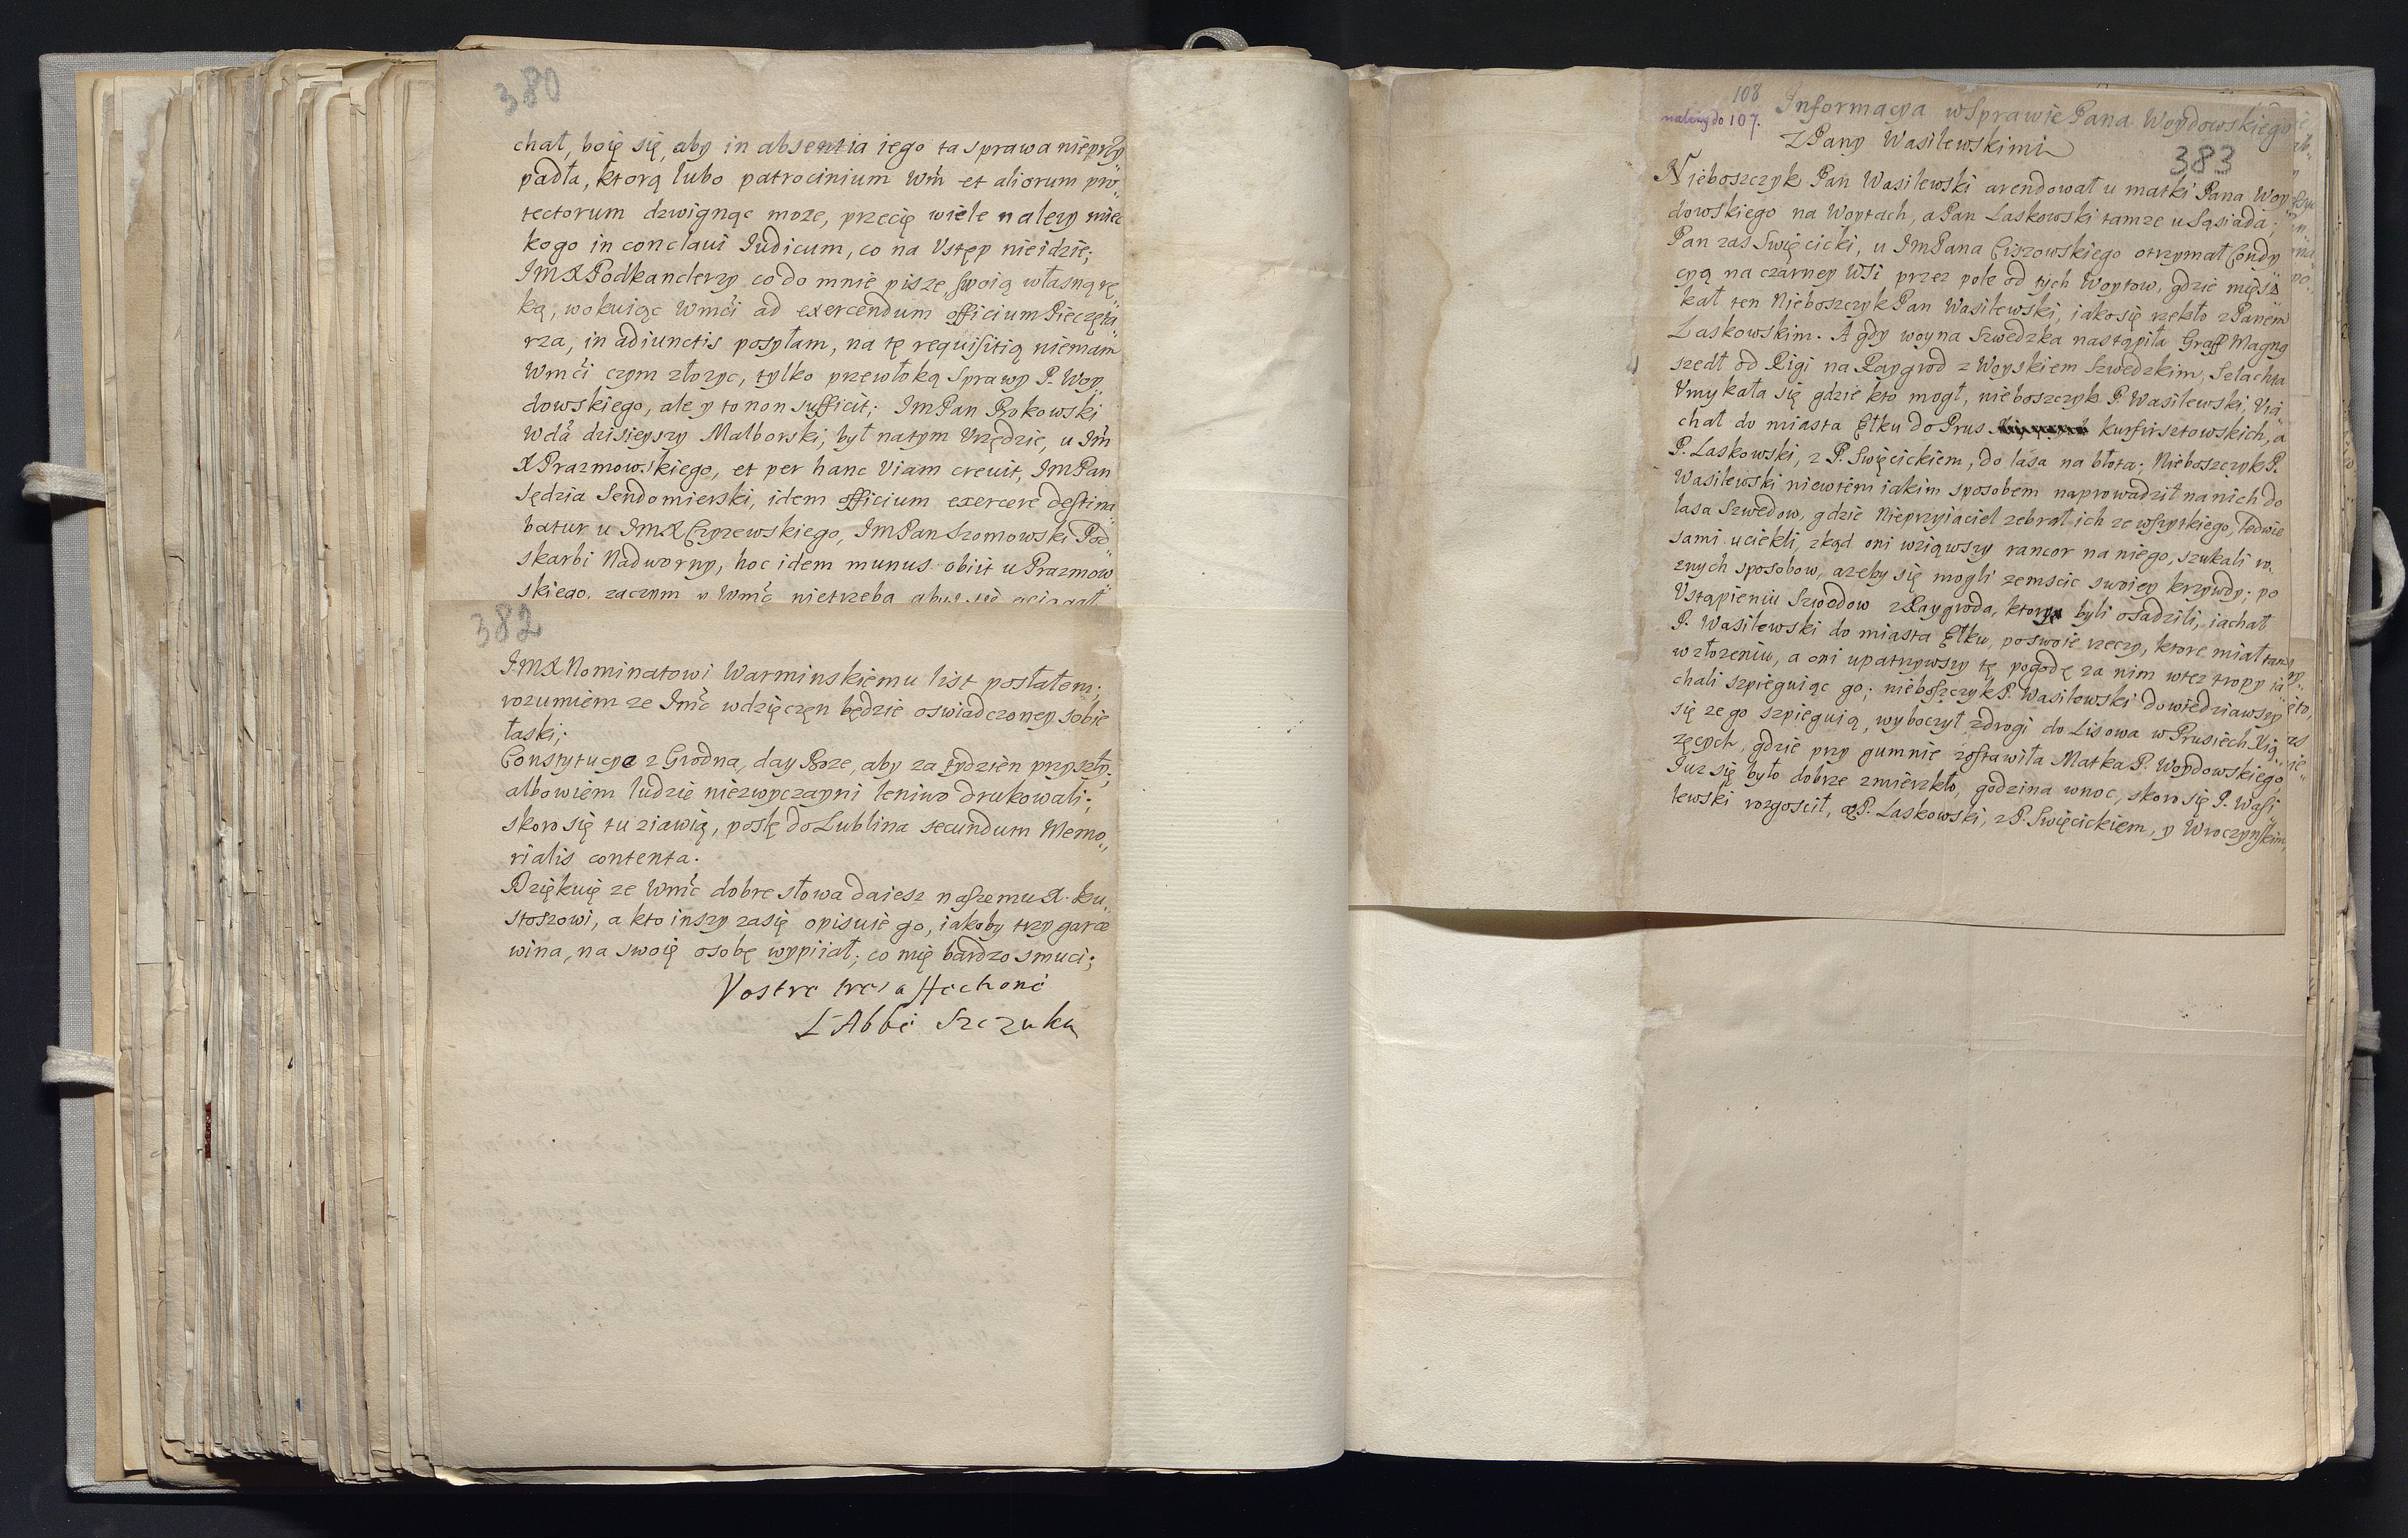 380
chał, boię się, aby in absentia iego ta sprawa nieprzy
padła, ktorą lubo patrocinium Wm̃ et aliorum pro„
tectorum dzwignąc moze, przecię wiele nalezy miec
kogo in conclaui Iudicum, co na Vstęp nieidzie;
IMX Podkanclerzy co do mnie pisze, swoią własną rę„
ką, wokuiąc Wmći ad exercendum officium Pieczęta„
rza, in adiunctis posyłam, na tę requisitią niemam
Wmći czym złozyc, tylko przewłoką Sprawy P. Woy„
dowskiego, ale y to non sufficit; ImPan Bokowski
Wdã dzisieyszy Malborski, był natym Vrzędzie, u Im̃
X Prazmowskiego, et per hanc Viam creuit, ImPan
Sędzia Sendomierski, idem officium exercere destina„
batur u IMX Czyzewskiego, ImPan Szomowski Pod„
skarbi Nadworny, hoc idem munus obiit u Prazmow„
skiego, zaczym y Wmć nietrzeba
382
IMX Nominatowi Warminskiemu list posłałem;
rozumiem ze Imć wdzięczen będzie oswiadczoney sobie
łaski;
Constytucye z Grodna, day Boze, aby za tydzien przyszły;
albowiem ludzie niezwyczayni leniwo drukowali;
skoro się tu ziawią, poslę do Lublina secundum Memo„
rialis contenta.
Dziękuię ze Wmć dobre słowa daiesz naszemu X. Ku„
stoszowi, a kto inszy zasię opisuie go, iakoby trzy garce
wina, na swoię osobę wypiiał; co mię bardzo smuci;
Vostre tres affectioné
L'Abbé Szczuka
108
nalezy do 107.
Informacya w Sprawie Pana Woydowskiego
Z Pany Wasilewskimi
383
Nieboszczyk Pan Wasilewski arendował u matki Pana Woy„
dowskiego na Woytach, a Pan Laskowski tamze u Sąsiada;
Pan zas Swięcicki, u ImPana Ciszowskiego otrzymał Condy„
cyą na czarney Wsi przez pole od tych Woytow, gdzie mięs
kał ten Nieboszczyk Pan Wasilewski, iako się rzekło z Panem
Laskowskim. A gdy woyna Szwedzka nastąpiła Graff Magny
szedł od Rigi na Raygrod z Woyskiem Szwedzkim, Selachta
Vmykała się gdzie kto mogł, nieboszczyk P. Wasilewski, Via„
chał do miasta Ełku do Prus kurfirsztowskich, a
P. Laskowski, z P. Swięcickiem, do lasa na błota; Nieboszczyk P.
Wasilewski niewiem iakim sposobem naprowadził na nich do
lasa Szwedow, gdzie Nieprzyiaciel zebrał ich ze wszystkiego, ledwie
sami uciekli, zkąd oni wziąwszy rancor na niego, szukali ro„
znych sposobow, azeby się mogli zemscic swoiey krzywdy; po
Vstąpieniu Szwedow z Raygroda, ktory byli osadzili, iachał
P. Wasilewski do miasta Ełku, po swoie rzeczy, ktore miał tam
w złozeniu, a oni upatrzywszy tę pogodę za nim wtez tropy ia„
chali szpieguiąc go; nieboszczyk P. Wasilewski dowiedziawszy
się ze go szpieguią, wyboczył z drogi do Lisowa w Prusiech Xią„
zęcych, gdzie przy gumnie zostawiła Matka P. Woydowskiego,
Iuz się było dobrze zmierzkło, godzina wnoc, skoro się P. Wasi„
lewski rozgoscił, aż P. Laskowski, z P. Swięcickiem, y Wroczynskim,